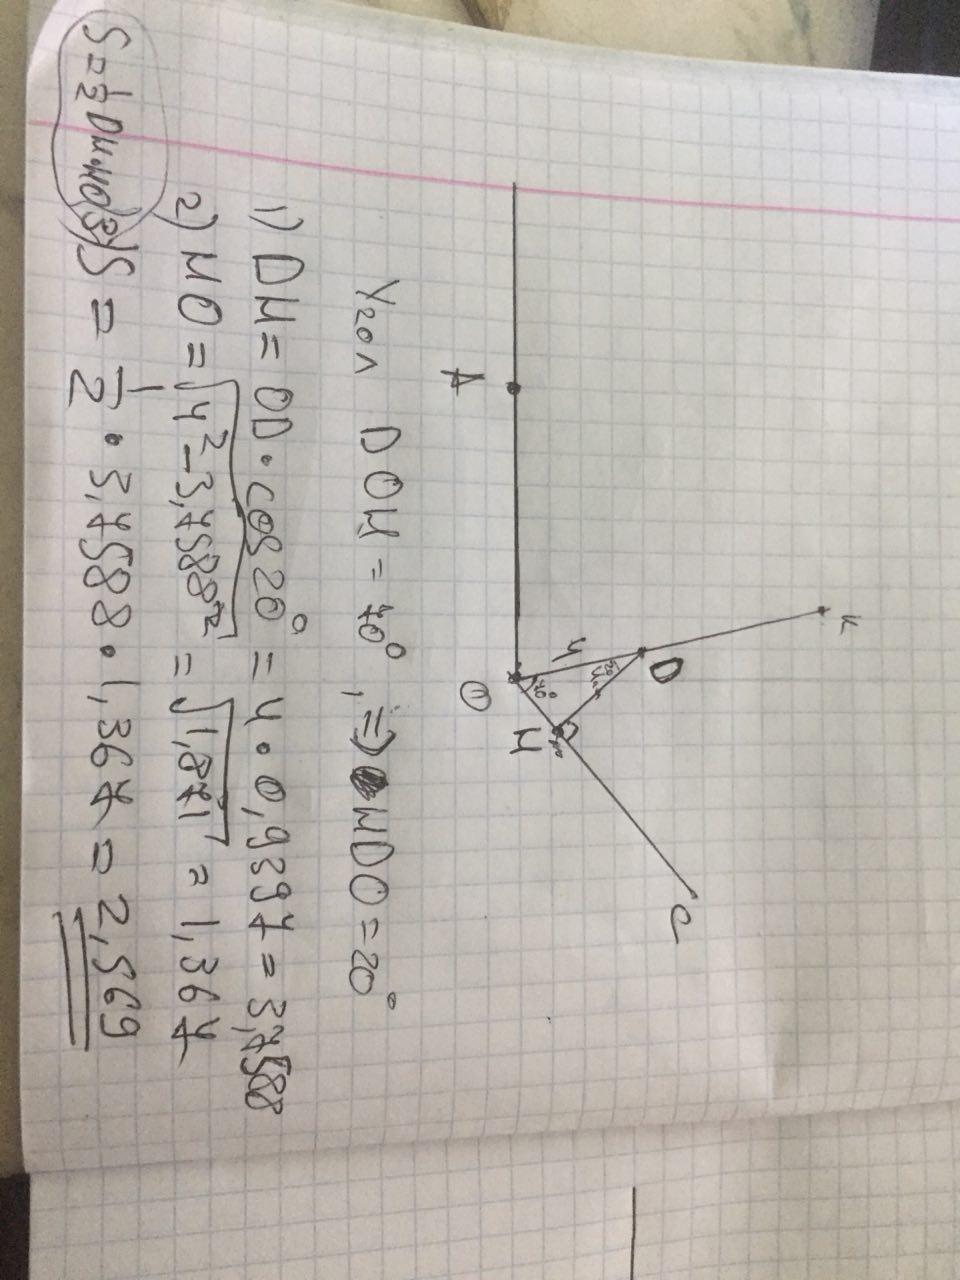 K
D
C
4
20°
70°
A
O
H
Угол DOH = 70°, => HDO = 20°
1) DH = OD · cos 20° = 4 · 0,9397 = 3,7588
2) HO = √4² - 3,7588² = √1,871 = 1,367
S = 1/2 DH · HO 3) S = 1/2 · 3,7588 · 1,367 = 2,569